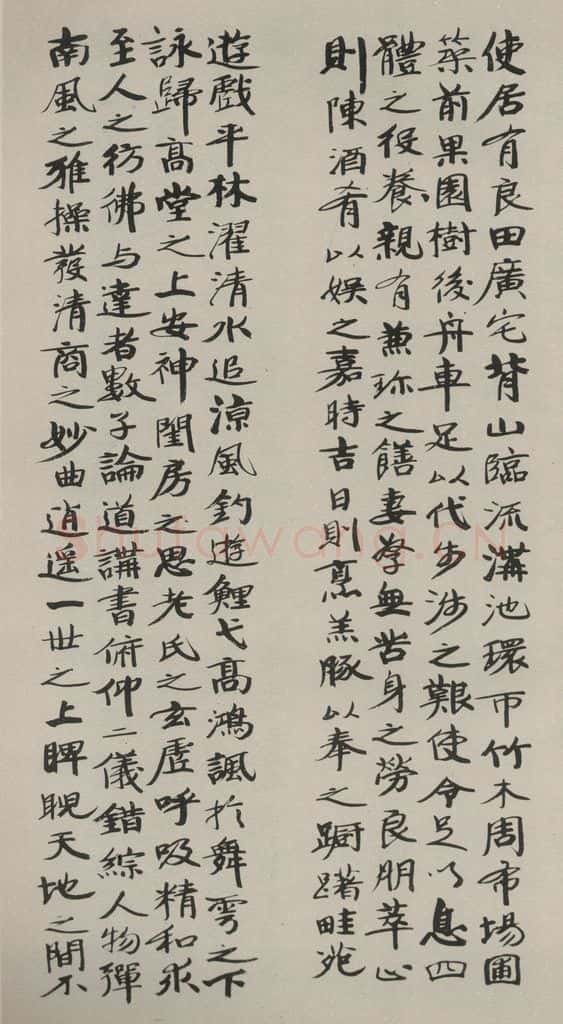 使居有良田廣宅背山臨流溝池環帀竹木周布場圃
築前果園樹後舟車足以代步涉之艱使令足以息四
體之役養親有兼珍之饍妻孥無苦身之勞良朋萃止
則陳酒肴以娛之嘉時吉日則烹羔豚以奉之蹰躇畦苑
遊戲平林濯清水追涼風釣遊鯉弋高鴻諷於舞雩之下
詠歸高堂之上安神閨房之思老氏之玄虛呼吸精和求
至人之彷彿与達者數子論道講書俯仰二儀錯綜人物彈
南風之雅操發清商之妙曲逍遥一世之上睥睨天地之間不
Shufawang.CN